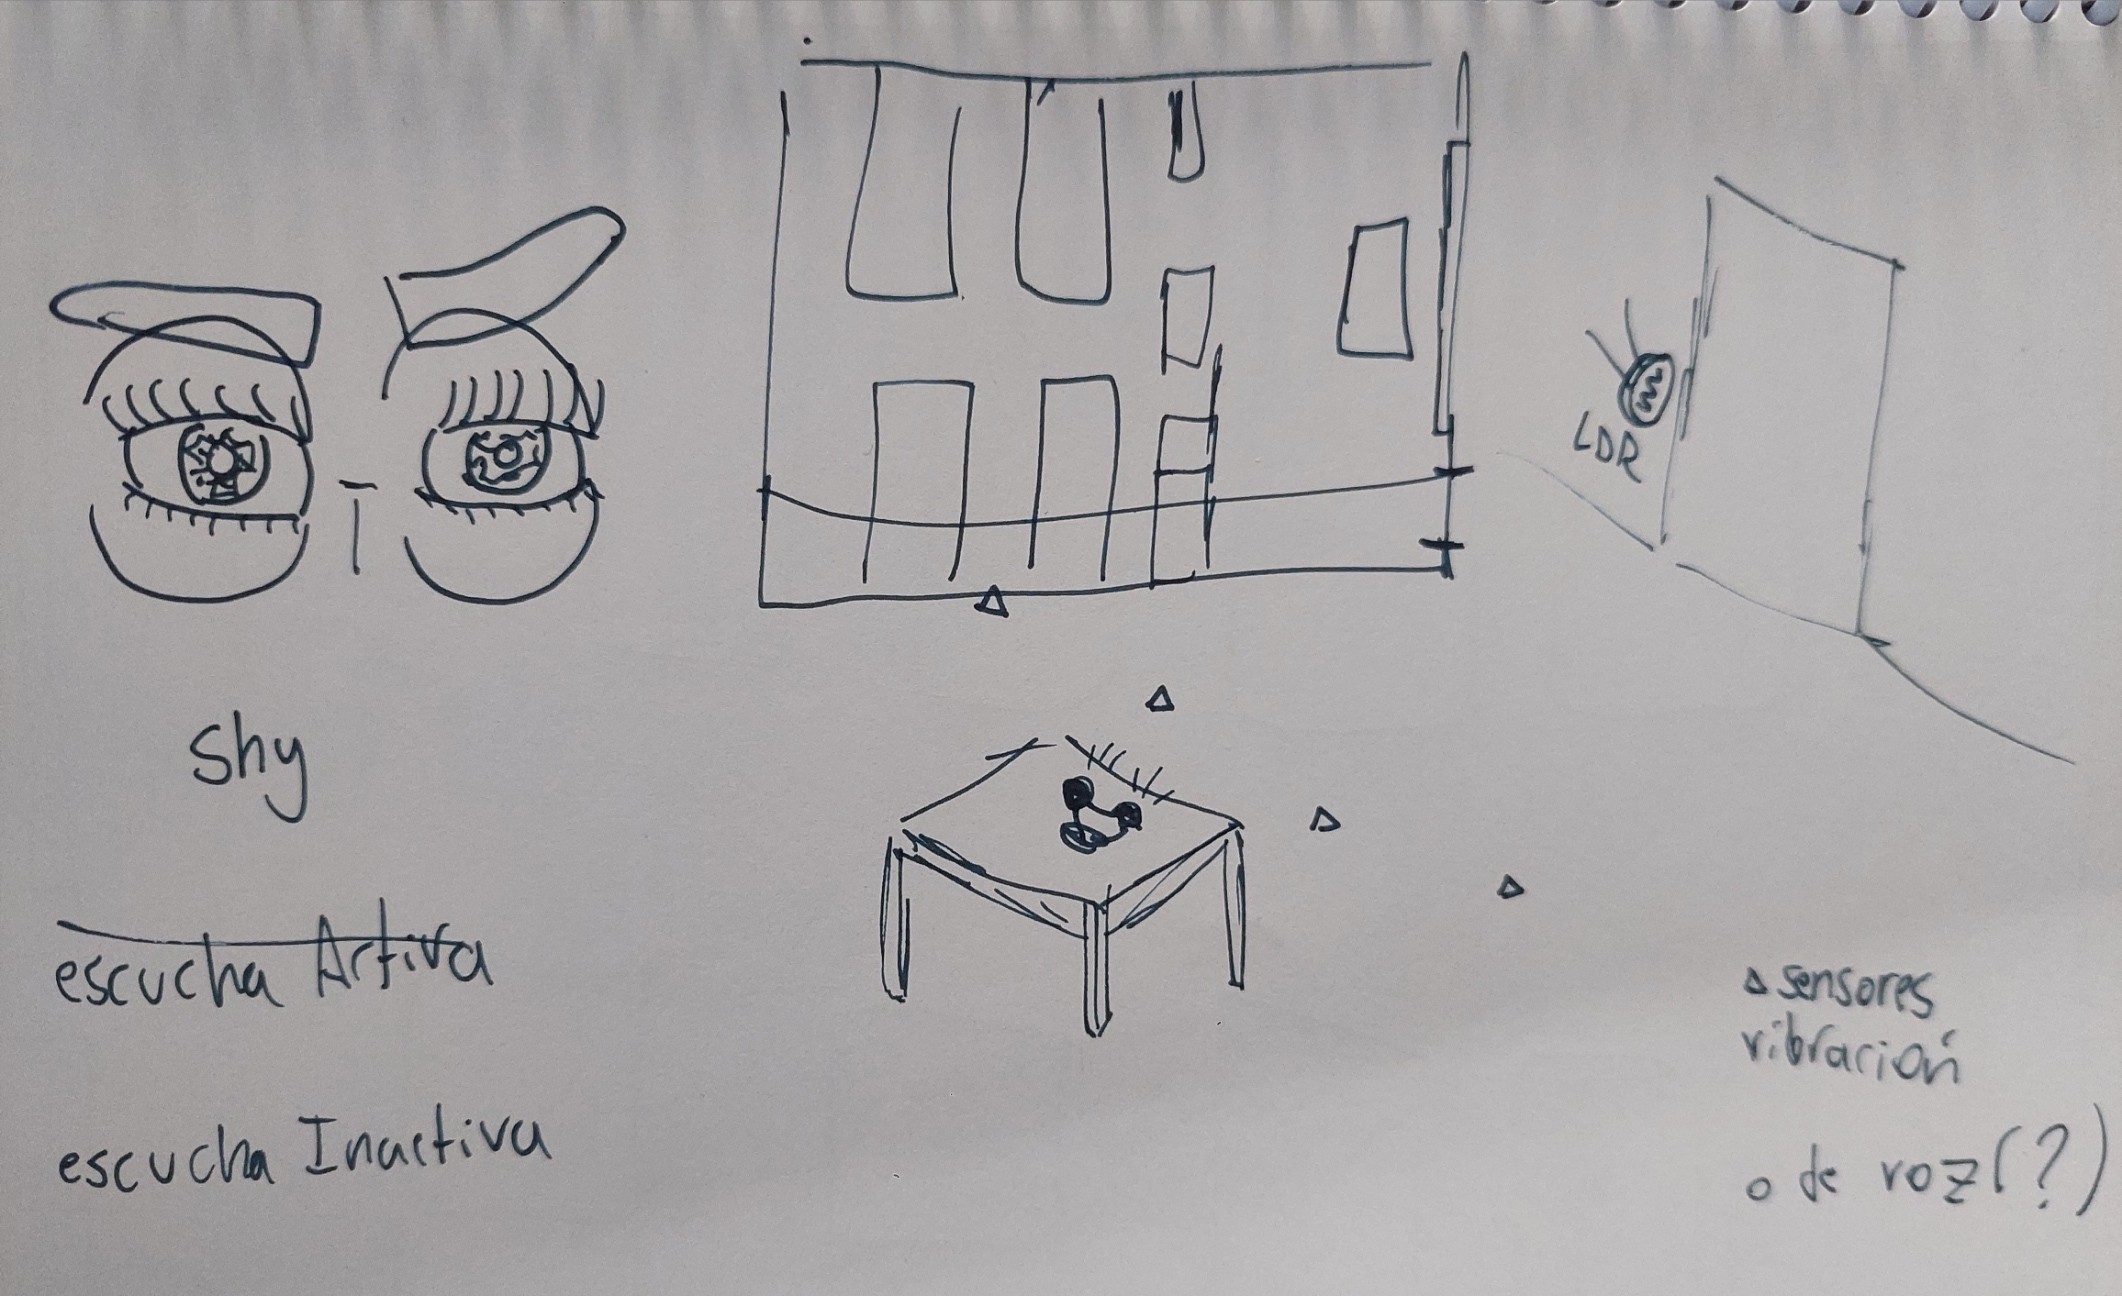 LDR
shy
escucha Activa
escucha Inactiva
△ sensores
vibración
o de voz(?)